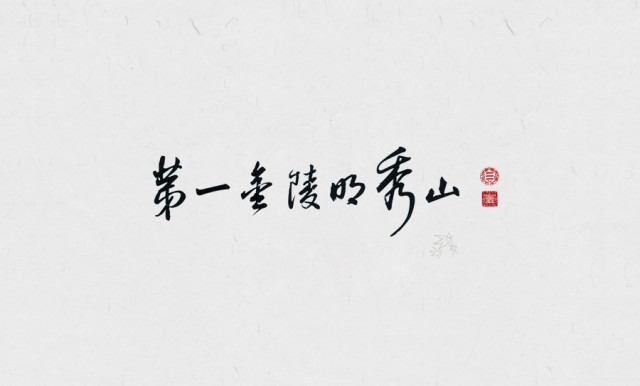 第一金陵明秀山